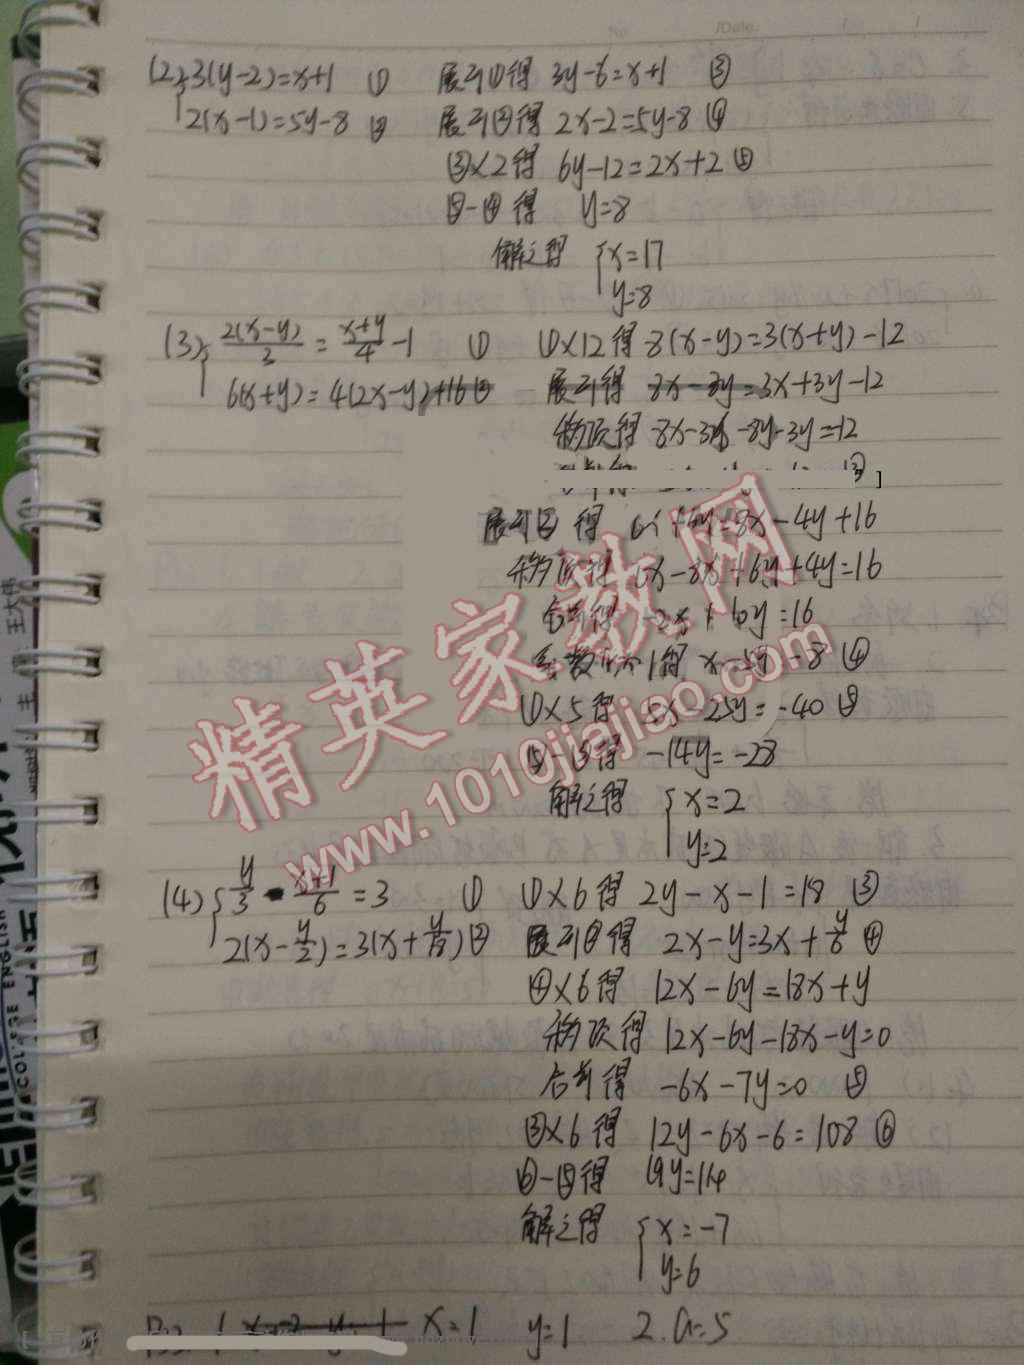 No. /Date / /
(2) {3(y-2)=x+1 ① 展开①得 3y-6=x+1 ③
2(x-1)=5y-8 ② 展开②得 2x-2=5y-8 ④
③×2得 6y-12=2x+2 ⑤
⑤-④得 y=8
解之得 {x=17
y=8
(3) {2(x-y)/3 = (x+y)/4 -1 ① ①×12得 8(x-y)=3(x+y)-12
6(x+y)=4(2x-y)+16 ② 展开得 8x-8y=3x+3y-12
移项得 8x-3x-8y-3y=-12
展开②得 6x+6y=8x-4y+16
移项得 6x-8x+6y+4y=16
合并得 -2x+10y=16
系数化为1得 x-5y=-8 ④
①×5得 5x-25y=-40 ⑤
⑤-③得 -14y=-28
解之得 {x=2
y=2
(4) {y/3 - (x+1)/6 = 3 ① ①×6得 2y-x-1=18 ③
2(x-y/2)=3(x+y/18) ② 展开②得 2x-y=3x+y/6 ④
④×6得 12x-6y=18x+y
移项得 12x-6y-18x-y=0
合并得 -6x-7y=0 ⑤
③×6得 12y-6x-6=108 ⑥
⑥-⑤得 19y=114
解之得 {x=-7
y=6
P33. 1 x=1 y=1 2. a=5
精英家教网
www.1010jiajiao.com
王大伟
COLLEGE ENGLISH